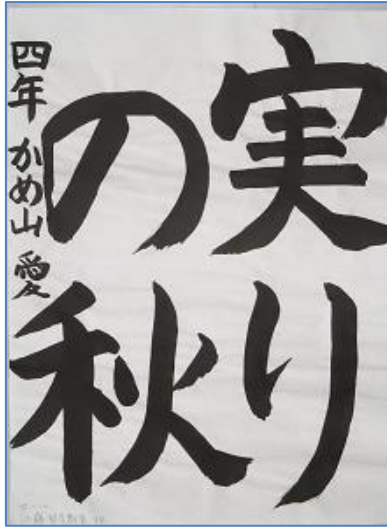 実り
の秋
四年 かめ山 愛